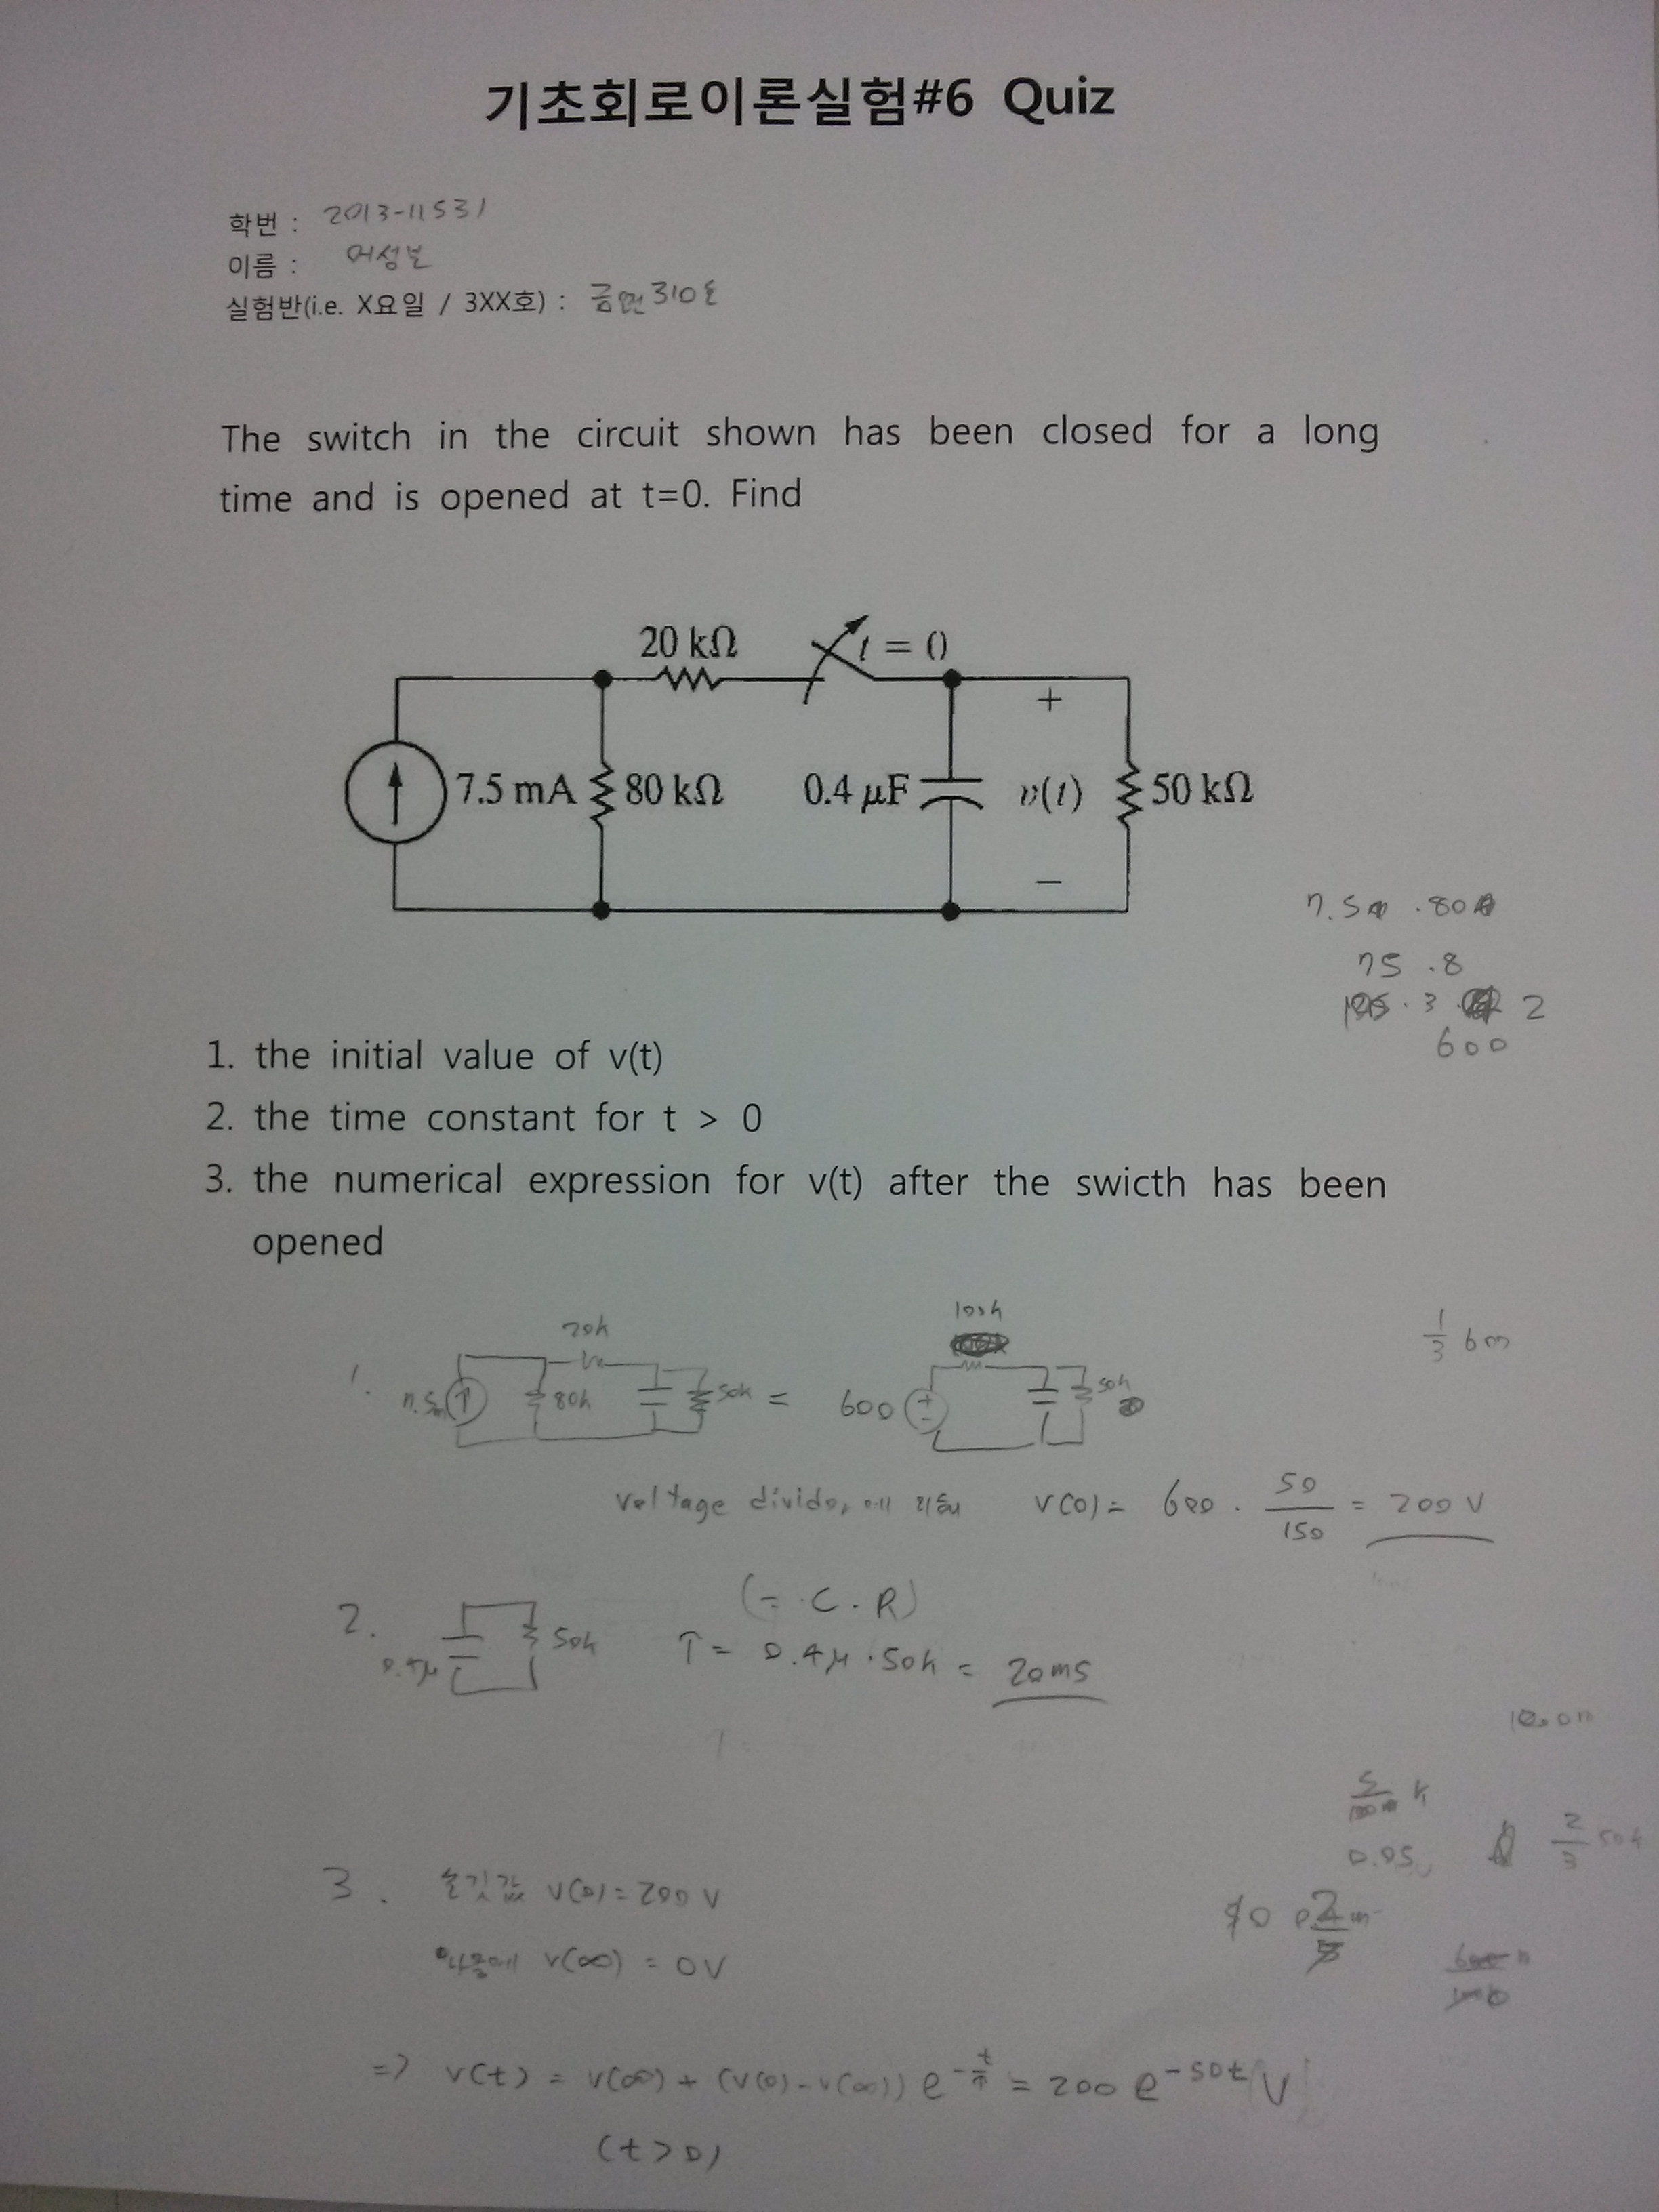 기초회로이론실험#6 Quiz
학번 : 2013-11531
이름 : 어성보
실험반(i.e. X요일 / 3XX호) : 310호
The switch in the circuit shown has been closed for a long
time and is opened at t=0. Find
20 kΩ t = 0
+
7.5 mA 80 kΩ 0.4 μF v(t) 50 kΩ
−
7.5 .80
75 .8
. 3 . 2
600
1. the initial value of v(t)
2. the time constant for t > 0
3. the numerical expression for v(t) after the swicth has been
opened
100k
20k
1/3 6m
1.
7.5m 80k 50k = 600 + - 50k
voltage divider에 의해 v(0) = 600 . 50/150 = 200 V
(= C . R)
2. 0.4μ 50k τ = 0.4μ . 50k = 20ms
k
0.05 2/3 50k
3. 초깃값 v(0) = 200 V
나중에 v(∞) = 0V
=> v(t) = v(∞) + (v(0) - v(∞)) e^-t/τ = 200 e^-50t V
(t>0)